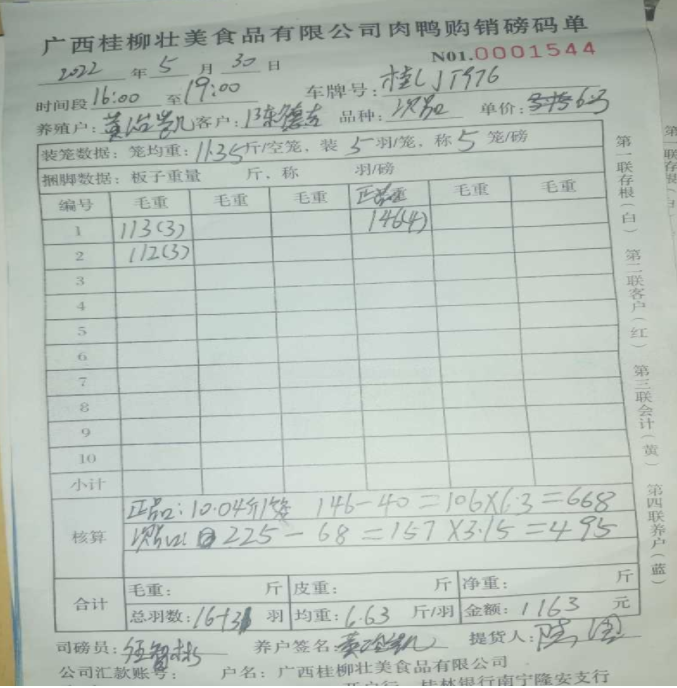 广西桂柳壮美食品有限公司肉鸭购销磅码单
2022 年 5 月 30 日 N01.0001544
时间段 16:00 至 19:00 车牌号: 桂 JT976
养殖户: 黄 客户: 陈 品种: 次品 单价: 6.3
装笼数据: 笼均重: 11.35 斤/空笼, 装 5 羽/笼, 称 5 笼/磅
捆脚数据: 板子重量 斤, 称 羽/磅
编号 毛重 毛重 毛重 正品 毛重 毛重
1 113(3) 146(4)
2 112(3)
3
4
5
6
7
8
9
10
小计
核算 正品: 10.04斤/笼 146-40=106×6.3=668
次品: 225-68=157×3.15=495
合计 毛重: 斤 皮重: 斤 净重: 斤
总羽数: 16+31 羽 均重: 6.63 斤/羽 金额: 1163 元
司磅员: 养户签名: 提货人:
公司汇款账号: 户名: 广西桂柳壮美食品有限公司
开户行: 桂林银行南宁隆安支行
第一联存根(白) 第二联客户(红) 第三联会计(黄) 第四联养户(蓝)